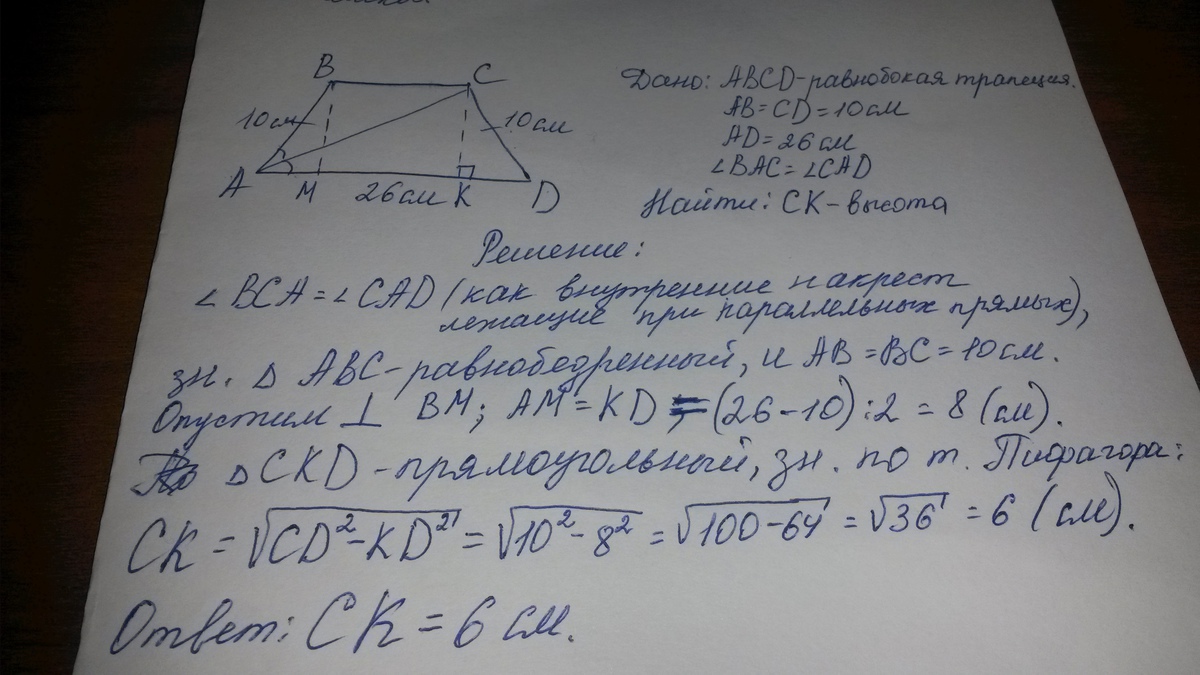 B C
10см 10см
A M 26см K D
Дано: ABCD-равнобокая трапеция.
AB=CD=10см
AD=26см
∠BAC=∠CAD
Найти: CK-высота
Решение:
∠BCA=∠CAD (как внутренние накрест
лежащие при параллельных прямых),
зн. △ ABC-равнобедренный, и AB=BC=10см.
Опустим ⊥ BM; AM=KD=(26-10):2=8(см).
△CKD-прямоугольный, зн. по т. Пифагора:
CK=√CD²-KD²=√10²-8²=√100-64=√36=6(см).
Ответ: CK=6см.